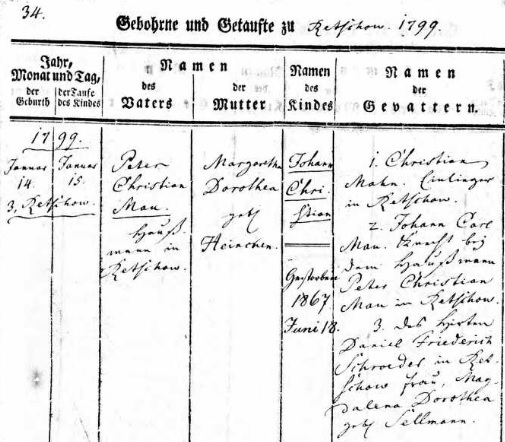 34.
Gebohrne und Getaufte zu Retschow. 1799.
Jahr,
Monat und Tag,
der
Geburth
der Taufe
des Kindes
Namen
des
Vaters
der
Mutter
Namen
des
Kindes
Namen
der
Gevattern.
1799.
Januar
14.
Januar
15.
3, Retschow.
Peter
Christian
Mau.
Hauß-
mann in
Retschow.
Margaretha
Dorothea
geb.
Heinchen.
Johann
Chri-
stian
Gestorben
1867
Juni 18.
1. Christian
Mahn. Einlieger
in Retschow.
2. Johann Carl
Mau. Knecht bey
dem Haußmann
Peter Christian
Mau in Retschow.
3. des Hirten
Daniel Friederich
Schroeder in Ret-
schow Frau, Mag-
dalena Dorothea
geb. Sellmann.